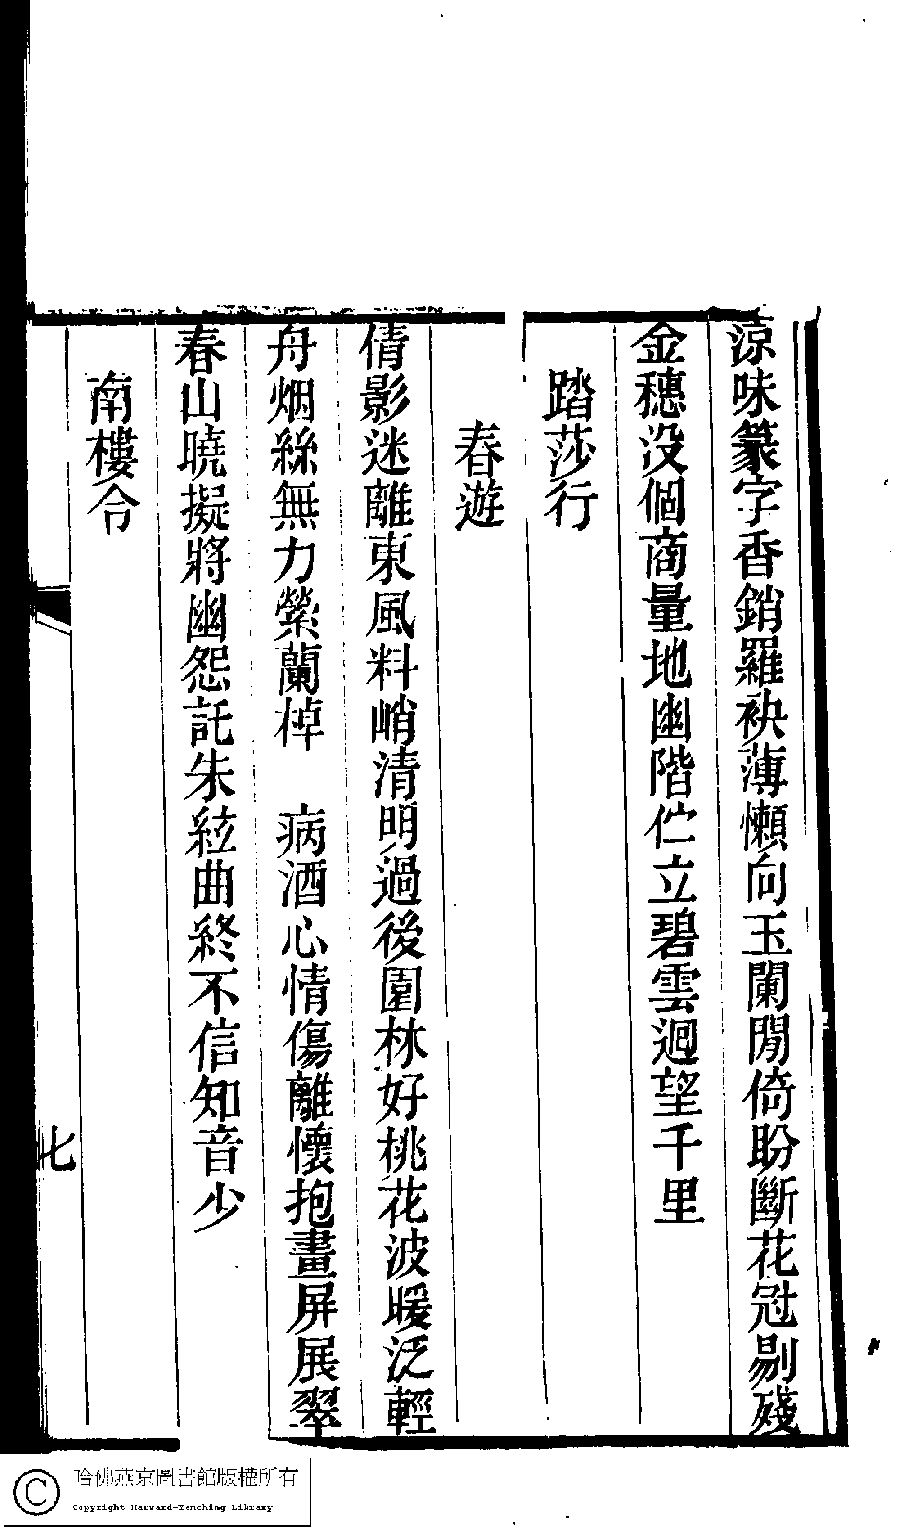 涼味篆字香銷羅袂薄懶向玉闌閒倚盼斷花冠剔殘
金穗没個商量地幽階伫立碧雲迴望千里
踏莎行
春遊
倩影迷離東風料峭清明過後園林好桃花波暖泛輕
舟烟絲無力縈蘭棹　病酒心情傷離懷抱畫屏展翠
春山曉擬將幽怨託朱絃曲終不信知音少
南樓令
七
哈佛燕京圖書館版權所有
Copyright Harvard-Yenching Library